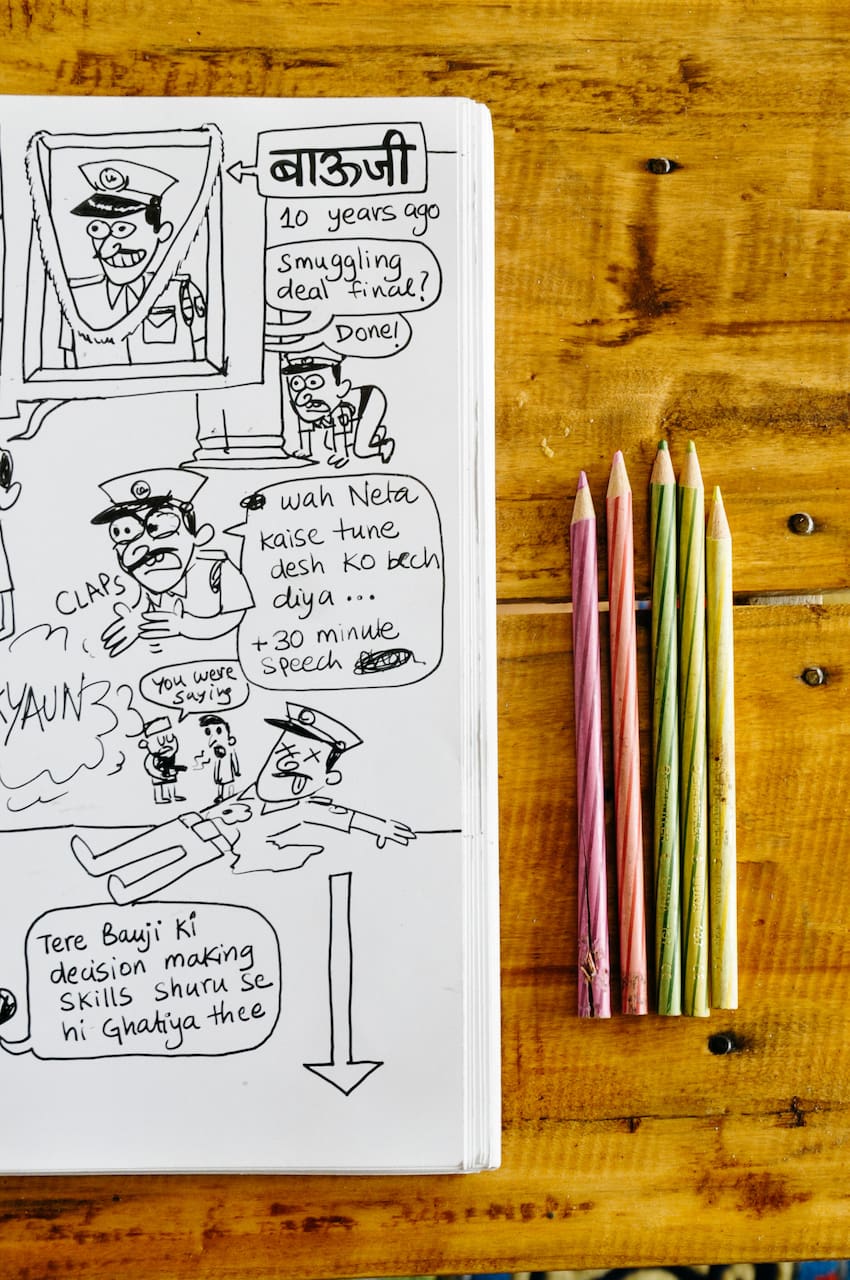 बाऊजी
10 years ago
Smuggling
deal final?
Done!
wah Neta
kaise tune
desh ko bech
diya ...
+30 minute
speech
CLAPS
KYAUN
You were
saying
Tere Bauji ki
decision making
skills shuru se
hi Ghatiya thee